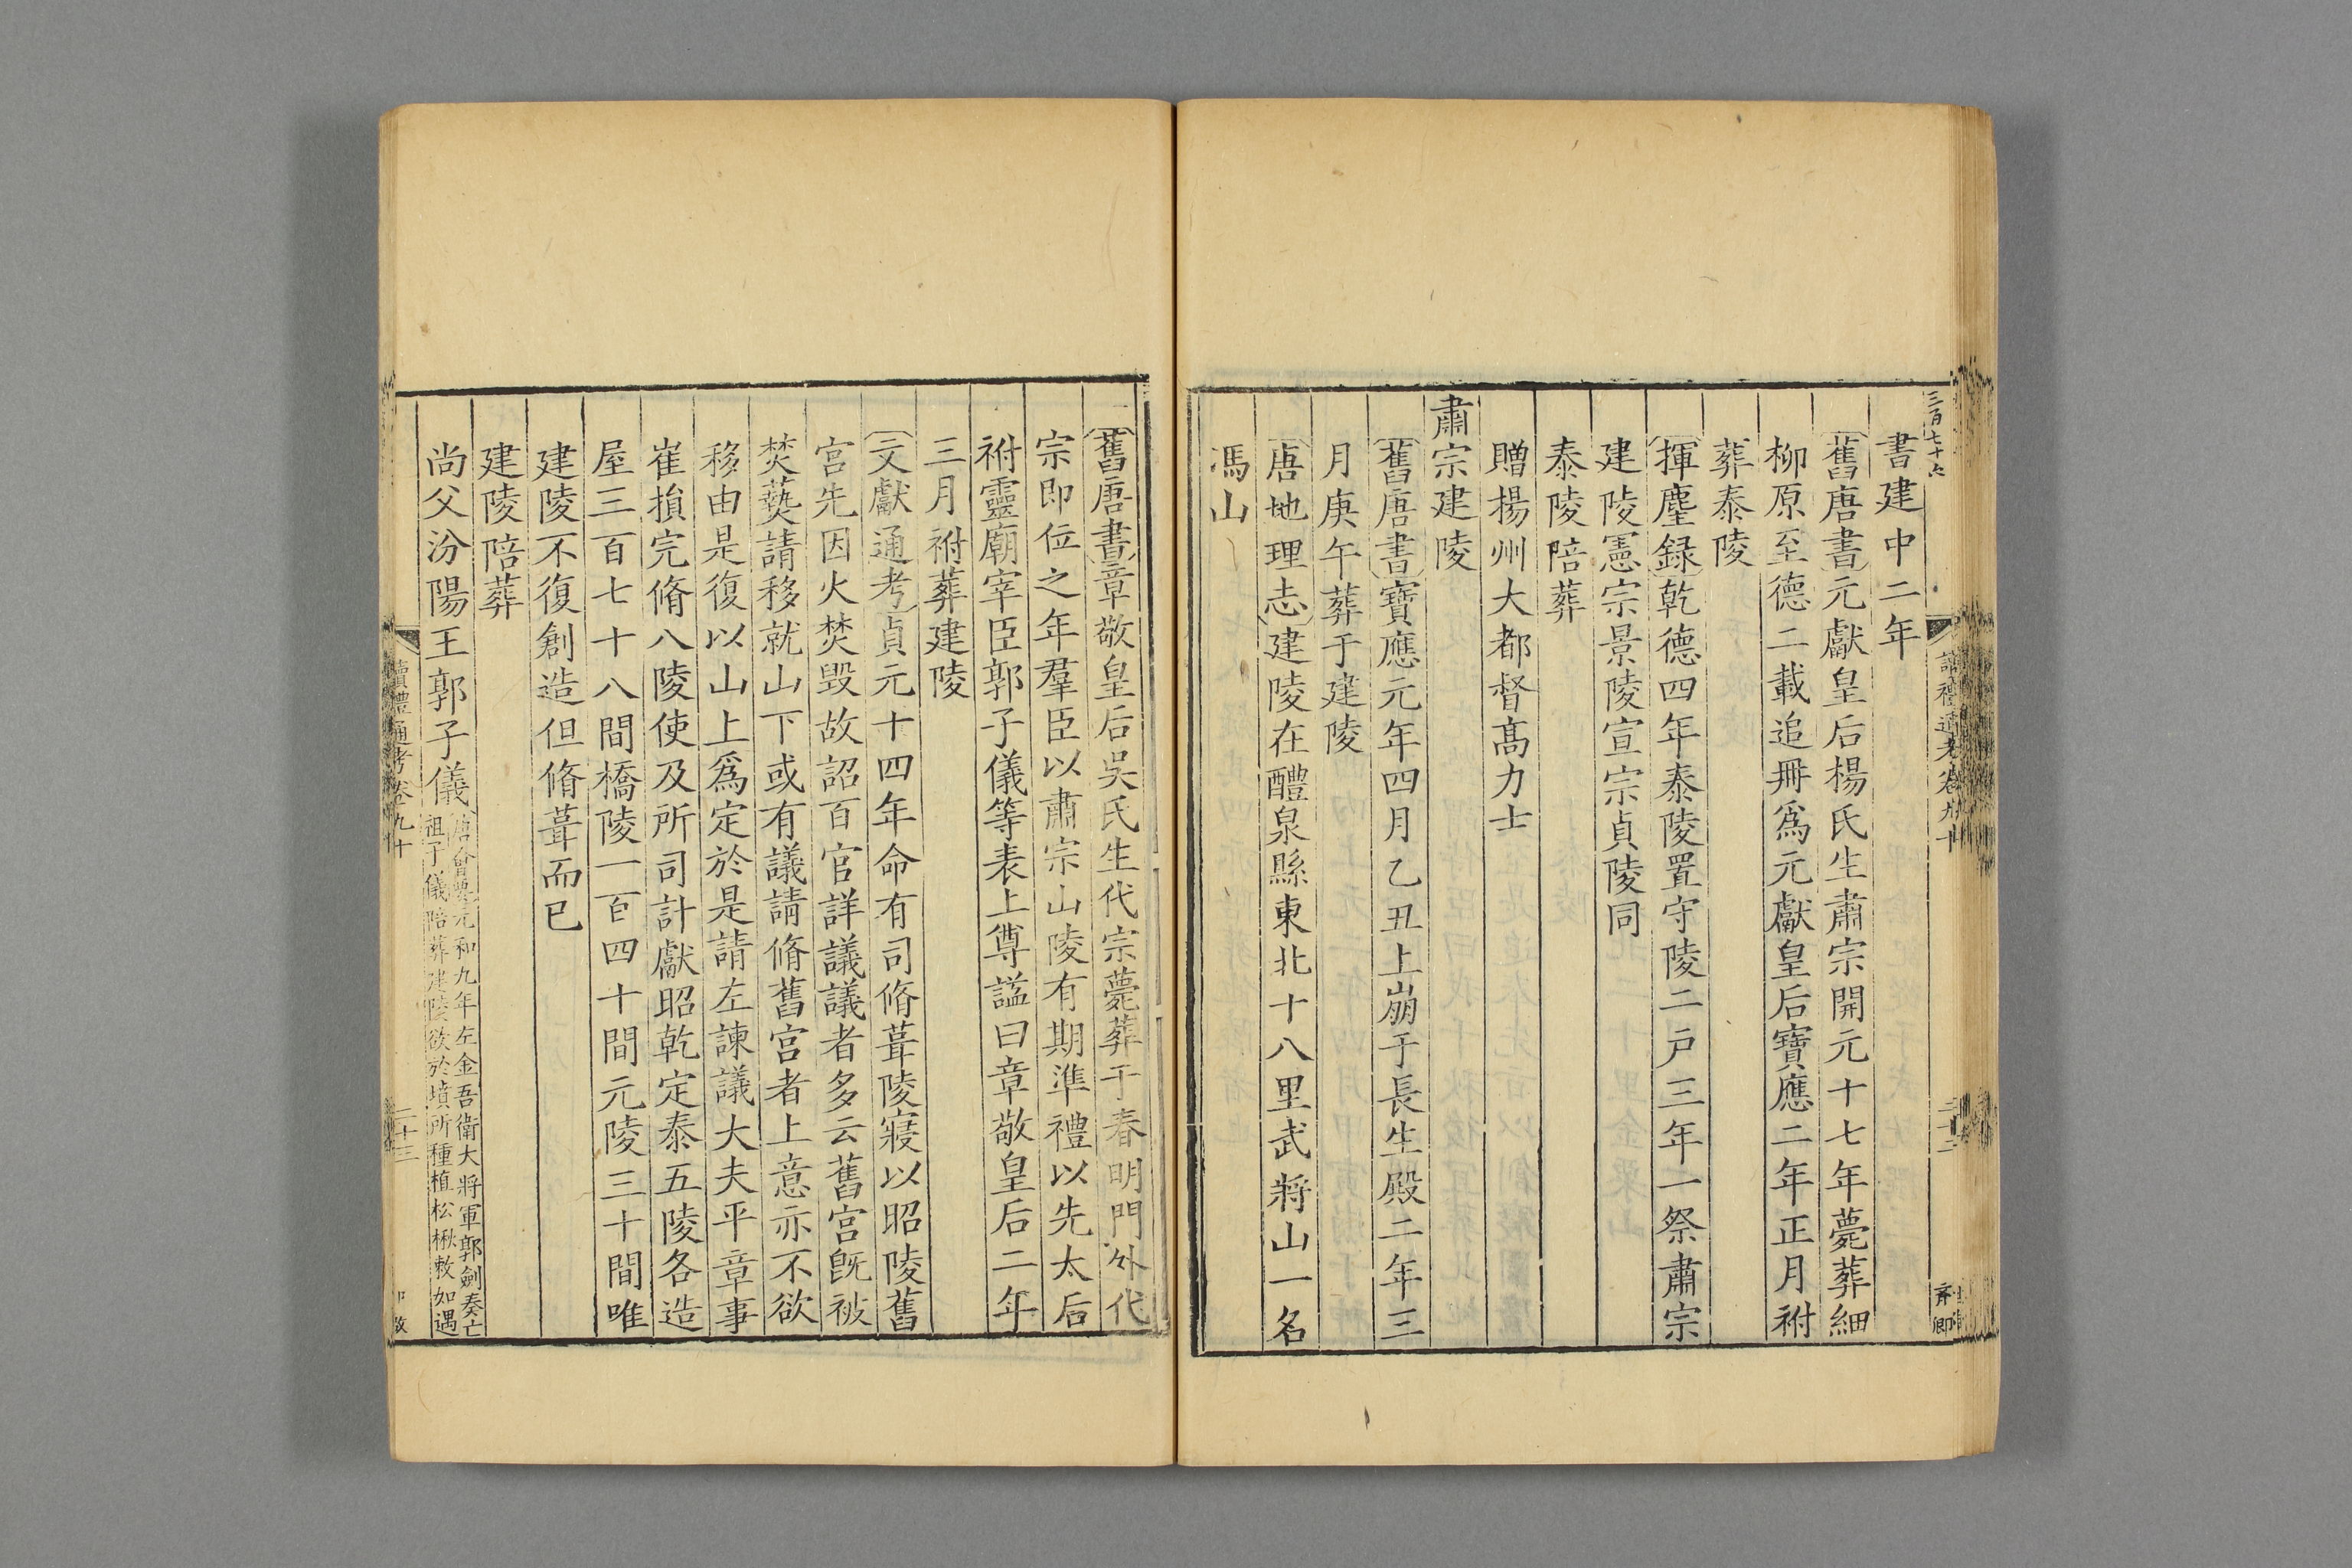 三百七十六
書建中二年
舊唐書元獻皇后楊氏生肅宗開元十七年薨葬細
柳原至德二載追冊爲元獻皇后寶應二年正月祔
葬泰陵
揮麈録乾德四年泰陵置守陵二戸三年一祭肅宗
建陵憲宗景陵宣宗貞陵同
泰陵陪葬
贈楊州大都督髙力士
肅宗建陵
舊唐書寶應元年四月乙丑上崩于長生殿二年三
月庚午葬于建陵
唐地理志建陵在醴泉縣東北十八里武將山一名
馮山
舊唐書章敬皇后吳氏生代宗薨葬于春明門外代
宗即位之年羣臣以肅宗山陵有期準禮以先太后
祔靈廟宰臣郭子儀等表上尊諡曰章敬皇后二年
三月祔葬建陵
文獻通考貞元十四年命有司脩葺陵寢以昭陵舊
宮先因火焚毀故詔百官詳議議者多云舊宮旣被
焚爇請移就山下或有議請脩舊宮者上意亦不欲
移由是復以山上爲定於是請左諫議大夫平章事
崔損完脩八陵使及所司計獻昭乾定泰五陵各造
屋三百七十八間橋陵一百四十間元陵三十間唯
建陵不復創造但脩葺而已
建陵陪葬
尚父汾陽王郭子儀
唐會要元和九年左金吾衛大將軍郭釗奏亡
祖子儀陪葬建陵欲於墳所種植松楸敕如遇
讀禮通考卷九十
二十三